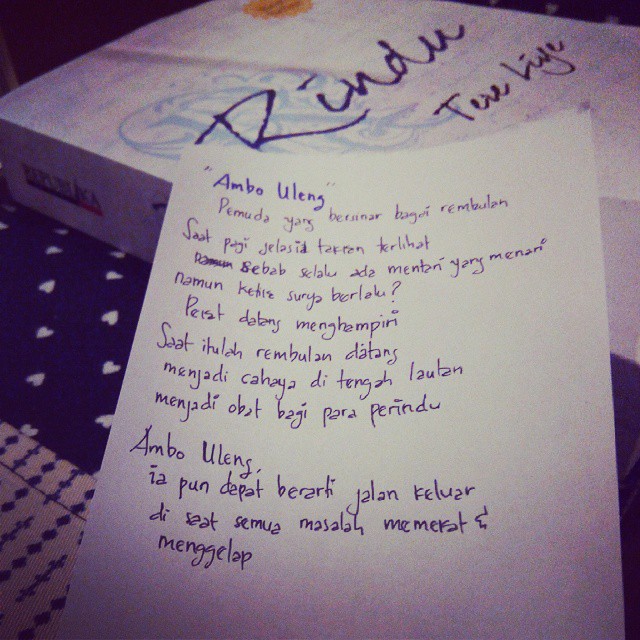 Rindu
Tere Liye
REPUBLIKA
"Ambo Uleng"
Pemuda yang bersinar bagai rembulan
Saat pagi jelas ia takkan terlihat
Namun Sebab selalu ada mentari yang menari
namun ketika surya berlalu?
Pekat datang menghampiri
Saat itulah rembulan datang
menjadi cahaya di tengah lautan
menjadi obat bagi para perindu
Ambo Uleng,
ia pun dapat berarti jalan keluar
di saat semua masalah memekat &
menggelap